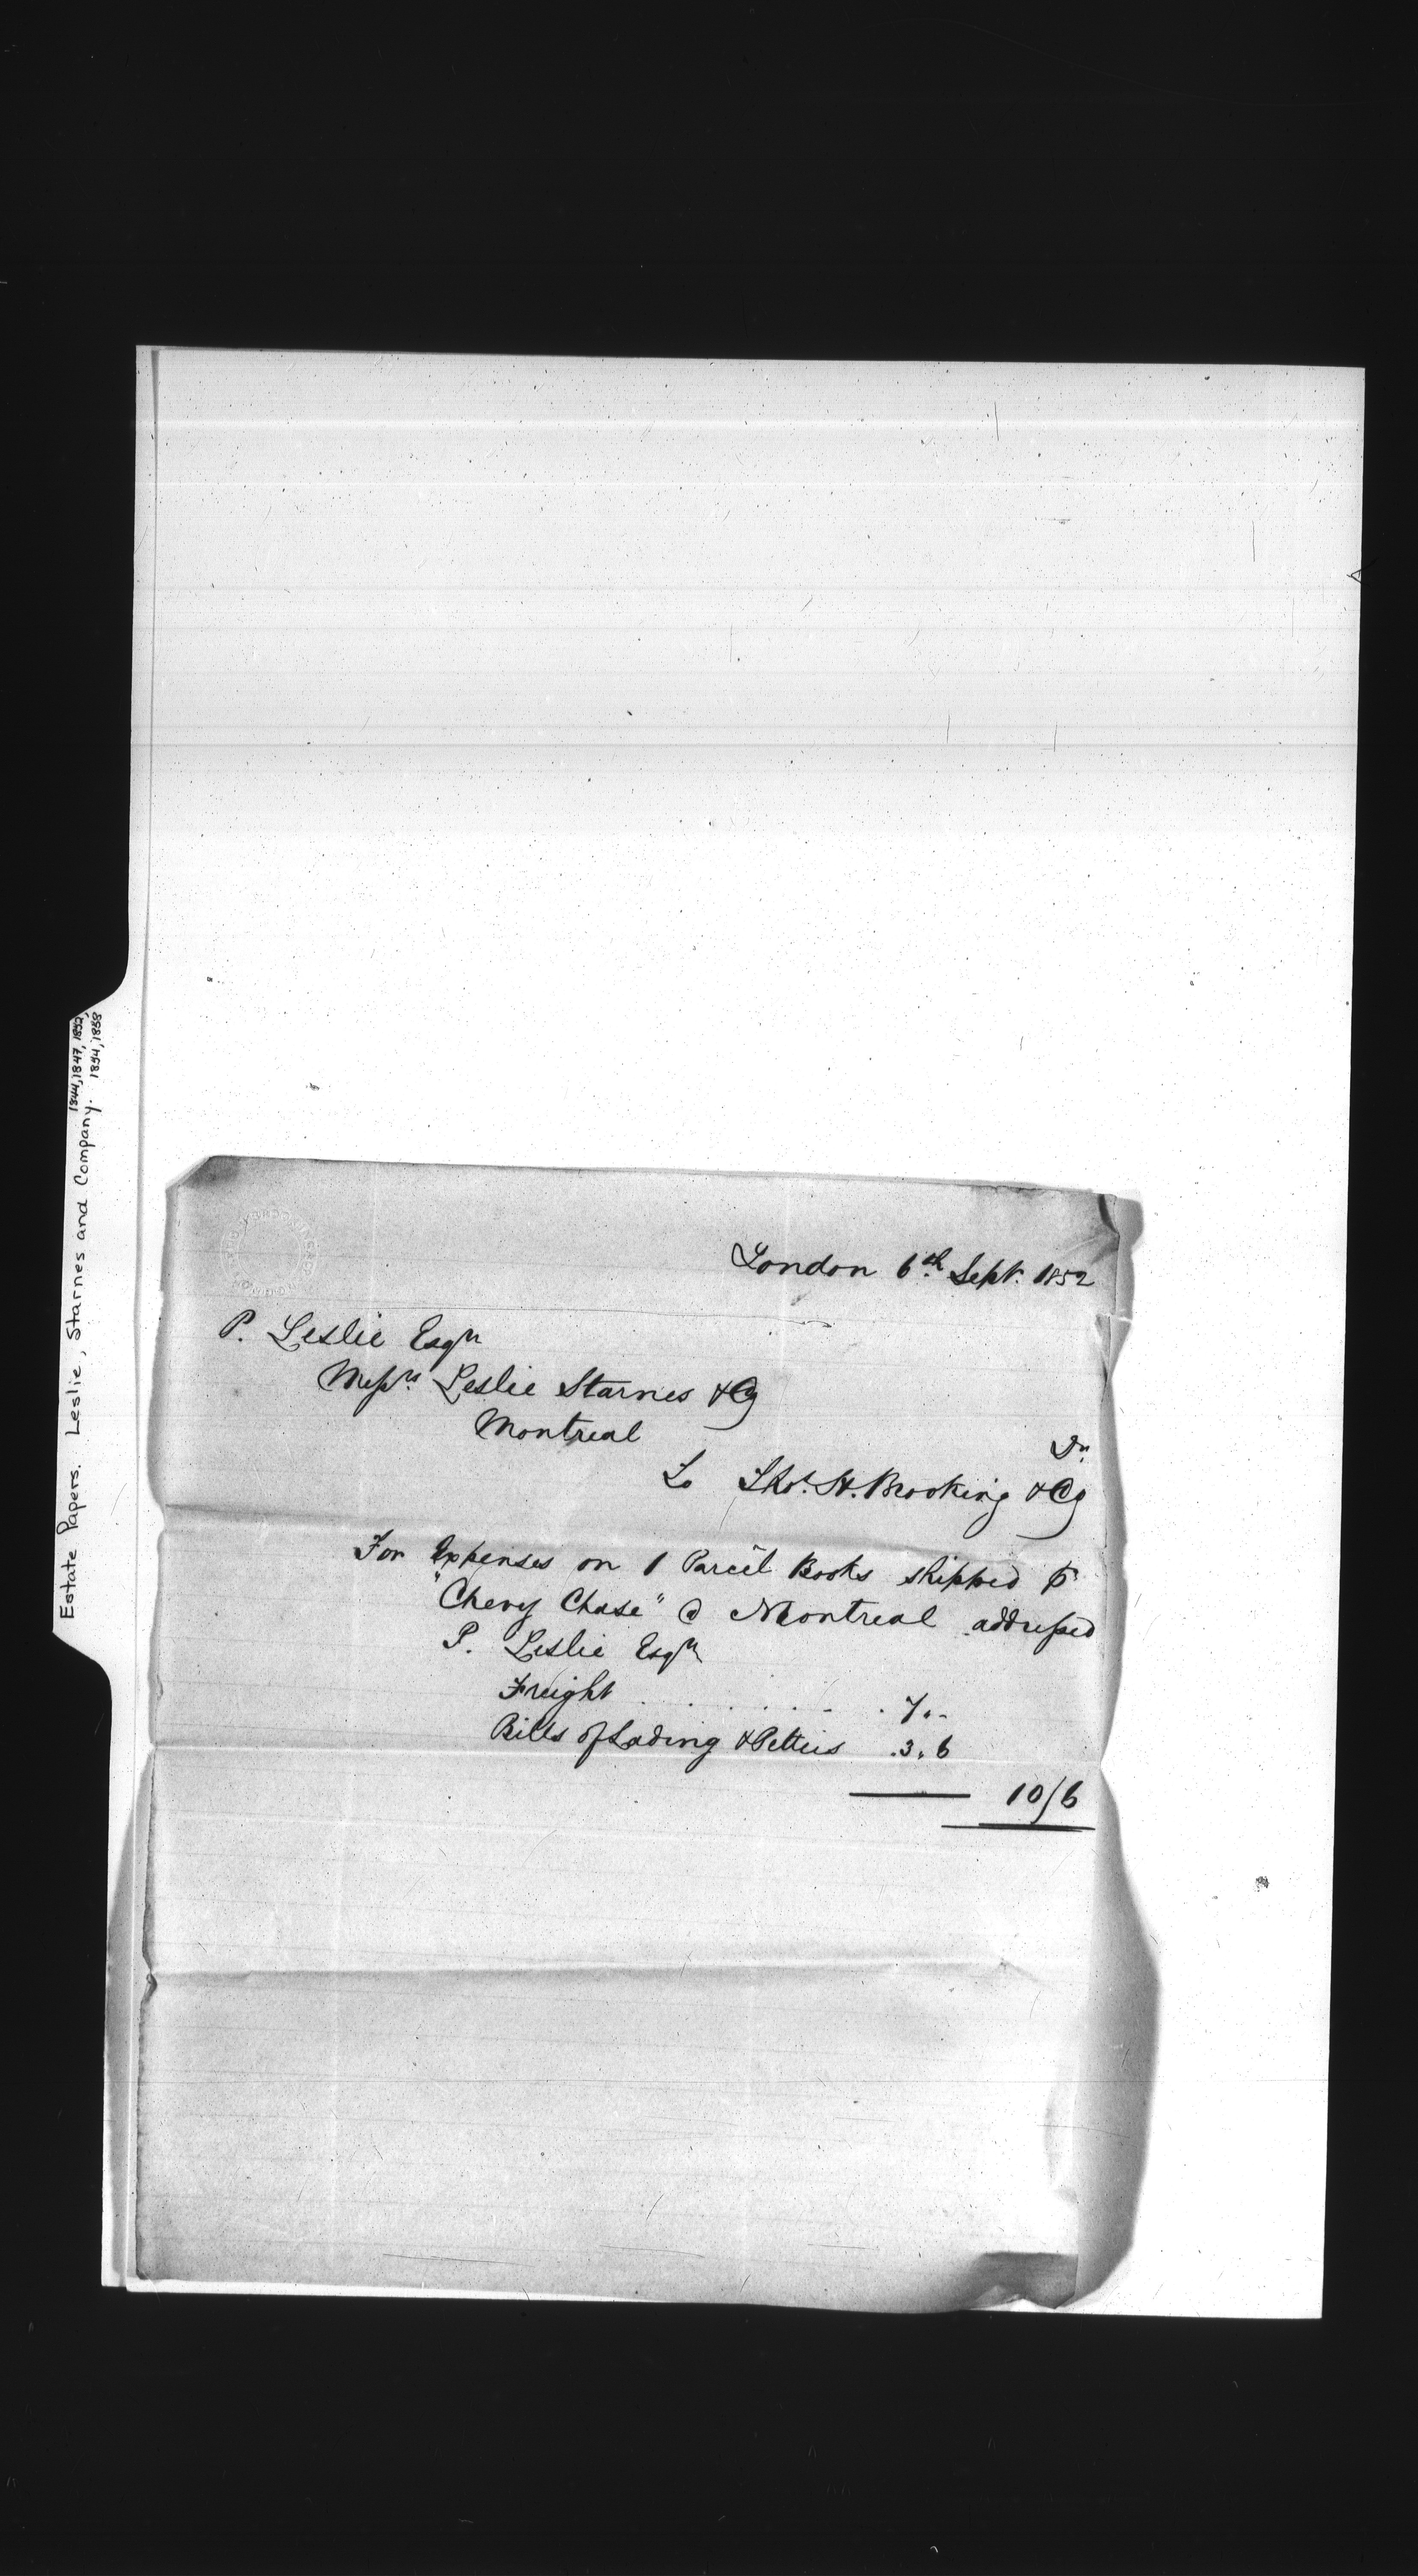 Estate Papers. Leslie, Starnes and Company. 1844, 1847, 1852, 1854, 1858
London 6th Sept. 1852
P. Leslie Esqr
Messrs Leslie Starnes & Co
Montreal
Dr
To Thos. H. Brooking & Co
For Expenses on 1 Parcel Books shipped ⅌
"Chevy Chase" @ Montreal addressed
P. Leslie Esqr
Freight . . . . . . 7.-
Bills of Lading & Petties .3.6
10/6